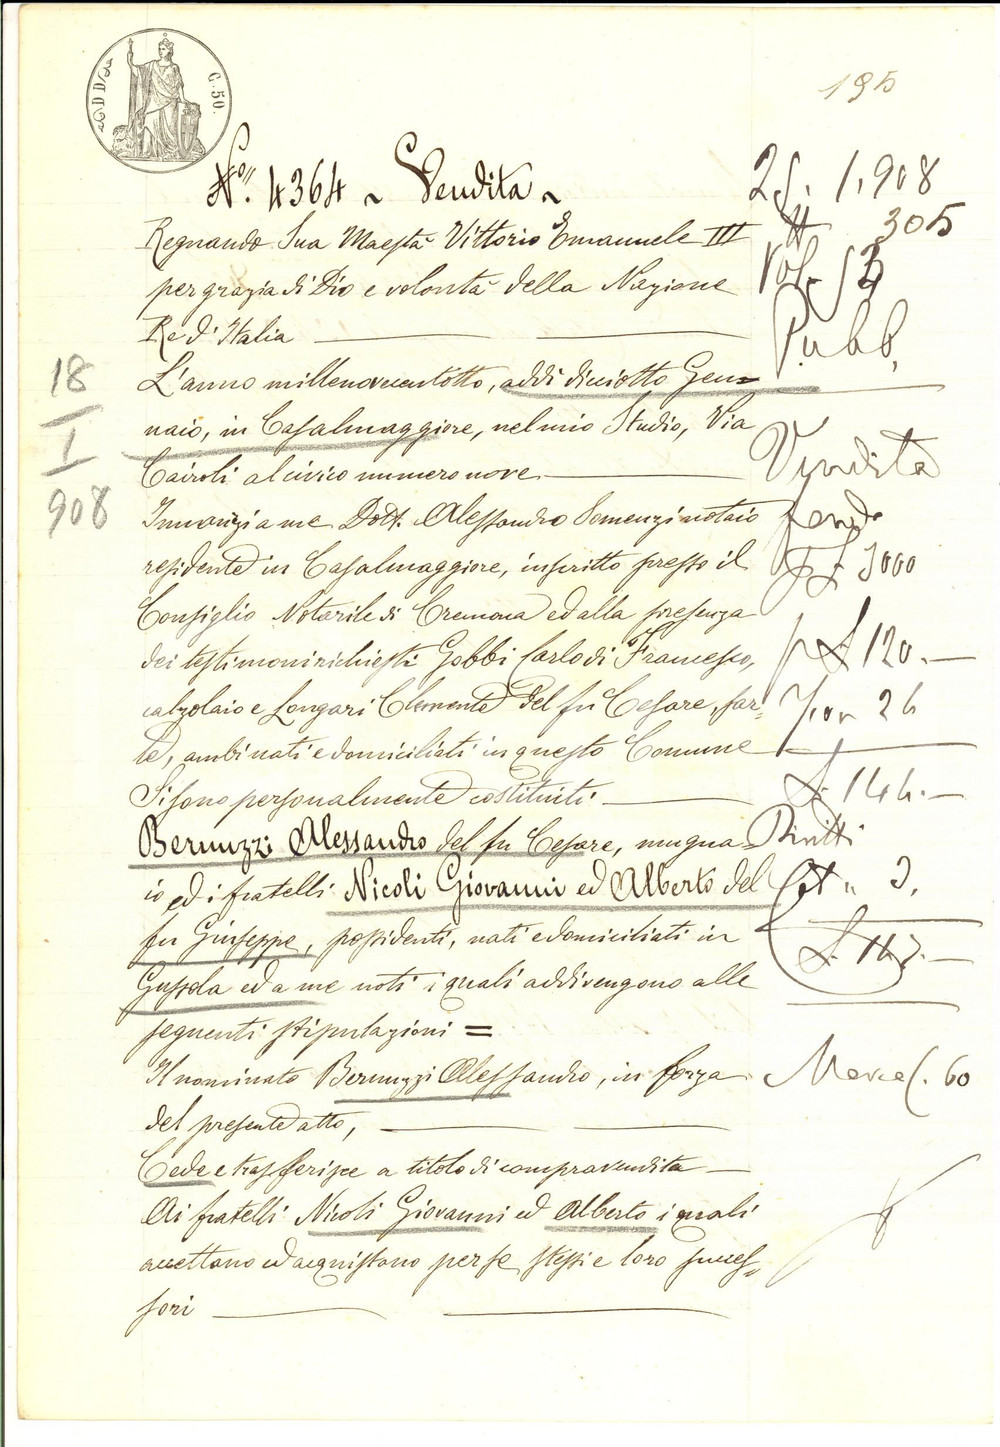 C. 50.
195
N.° 4364 ~ Vendita ~
Regnando Sua Maestà Vittorio Emanuele III
per grazia di Dio e volontà della Nazione
Re d'Italia
L'anno millenovecentotto, addì diciotto Gen=
naio, in Casalmaggiore, nel mio Studio, Via
Cairoli al civico numero nove
Innanzi a me Dott. Alessandro Somenzi notaio
residente in Casalmaggiore, inscritto presso il
Consiglio Notarile di Cremona ed alla presenza
dei testimoni richiesti Gobbi Carlo di Francesco,
calzolaio e Longari Clemente del fu Cesare, sar=
te, ambi nati e domiciliati in questo Comune
Si sono personalmente costituiti
Bernuzzi Alessandro del fu Cesare, mugna=
io ed i fratelli Nicoli Giovanni ed Alberto del
fu Giuseppe, possidenti, nati e domiciliati in
Gussola ed a me noti i quali addivengono alle
seguenti stipulazioni =
Il nominato Bernuzzi Alessandro, in forza
del presente atto,
Cede e trasferisce a titolo di compravendita
Ai fratelli Nicoli Giovanni ed Alberto i quali
accettano ed acquistano per se stessi e loro succes=
sori
18
I
908
25. 1. 908
305
Vol. 53
Pubb.
Vendita
fondo
£ 3000
£ 120.—
26
£ 146.—
Diritti
Cat " 3.
Marca C. 60